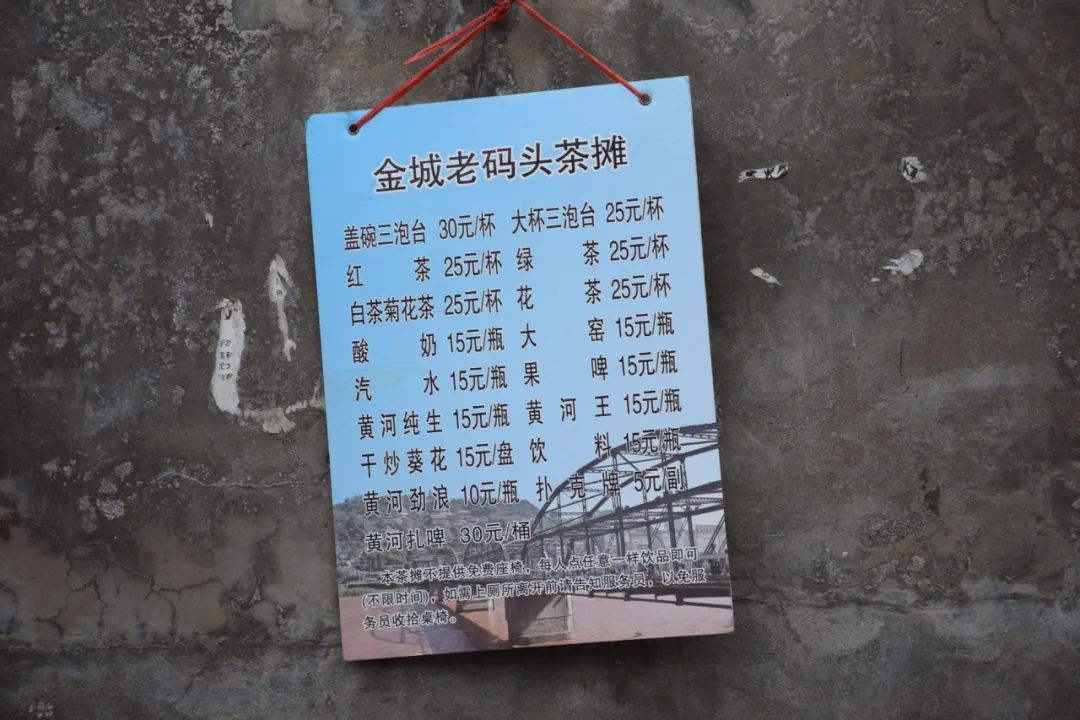 金城老码头茶摊
盖碗三泡台 30元/杯 大杯三泡台 25元/杯
红茶 25元/杯 绿茶 25元/杯
白茶菊花茶 25元/杯 花茶 25元/杯
酸奶 15元/瓶 大窑 15元/瓶
汽水 15元/瓶 果啤 15元/瓶
黄河纯生 15元/瓶 黄河王 15元/瓶
干炒葵花 15元/盘 饮料 15元/瓶
黄河劲浪 10元/瓶 扑克牌 5元/副
黄河扎啤 30元/桶
本茶摊不提供免费座椅，每人点任意一样饮品即可
(不限时间)，如需上厕所离开前请告知服务员，以免服
务员收拾桌椅。